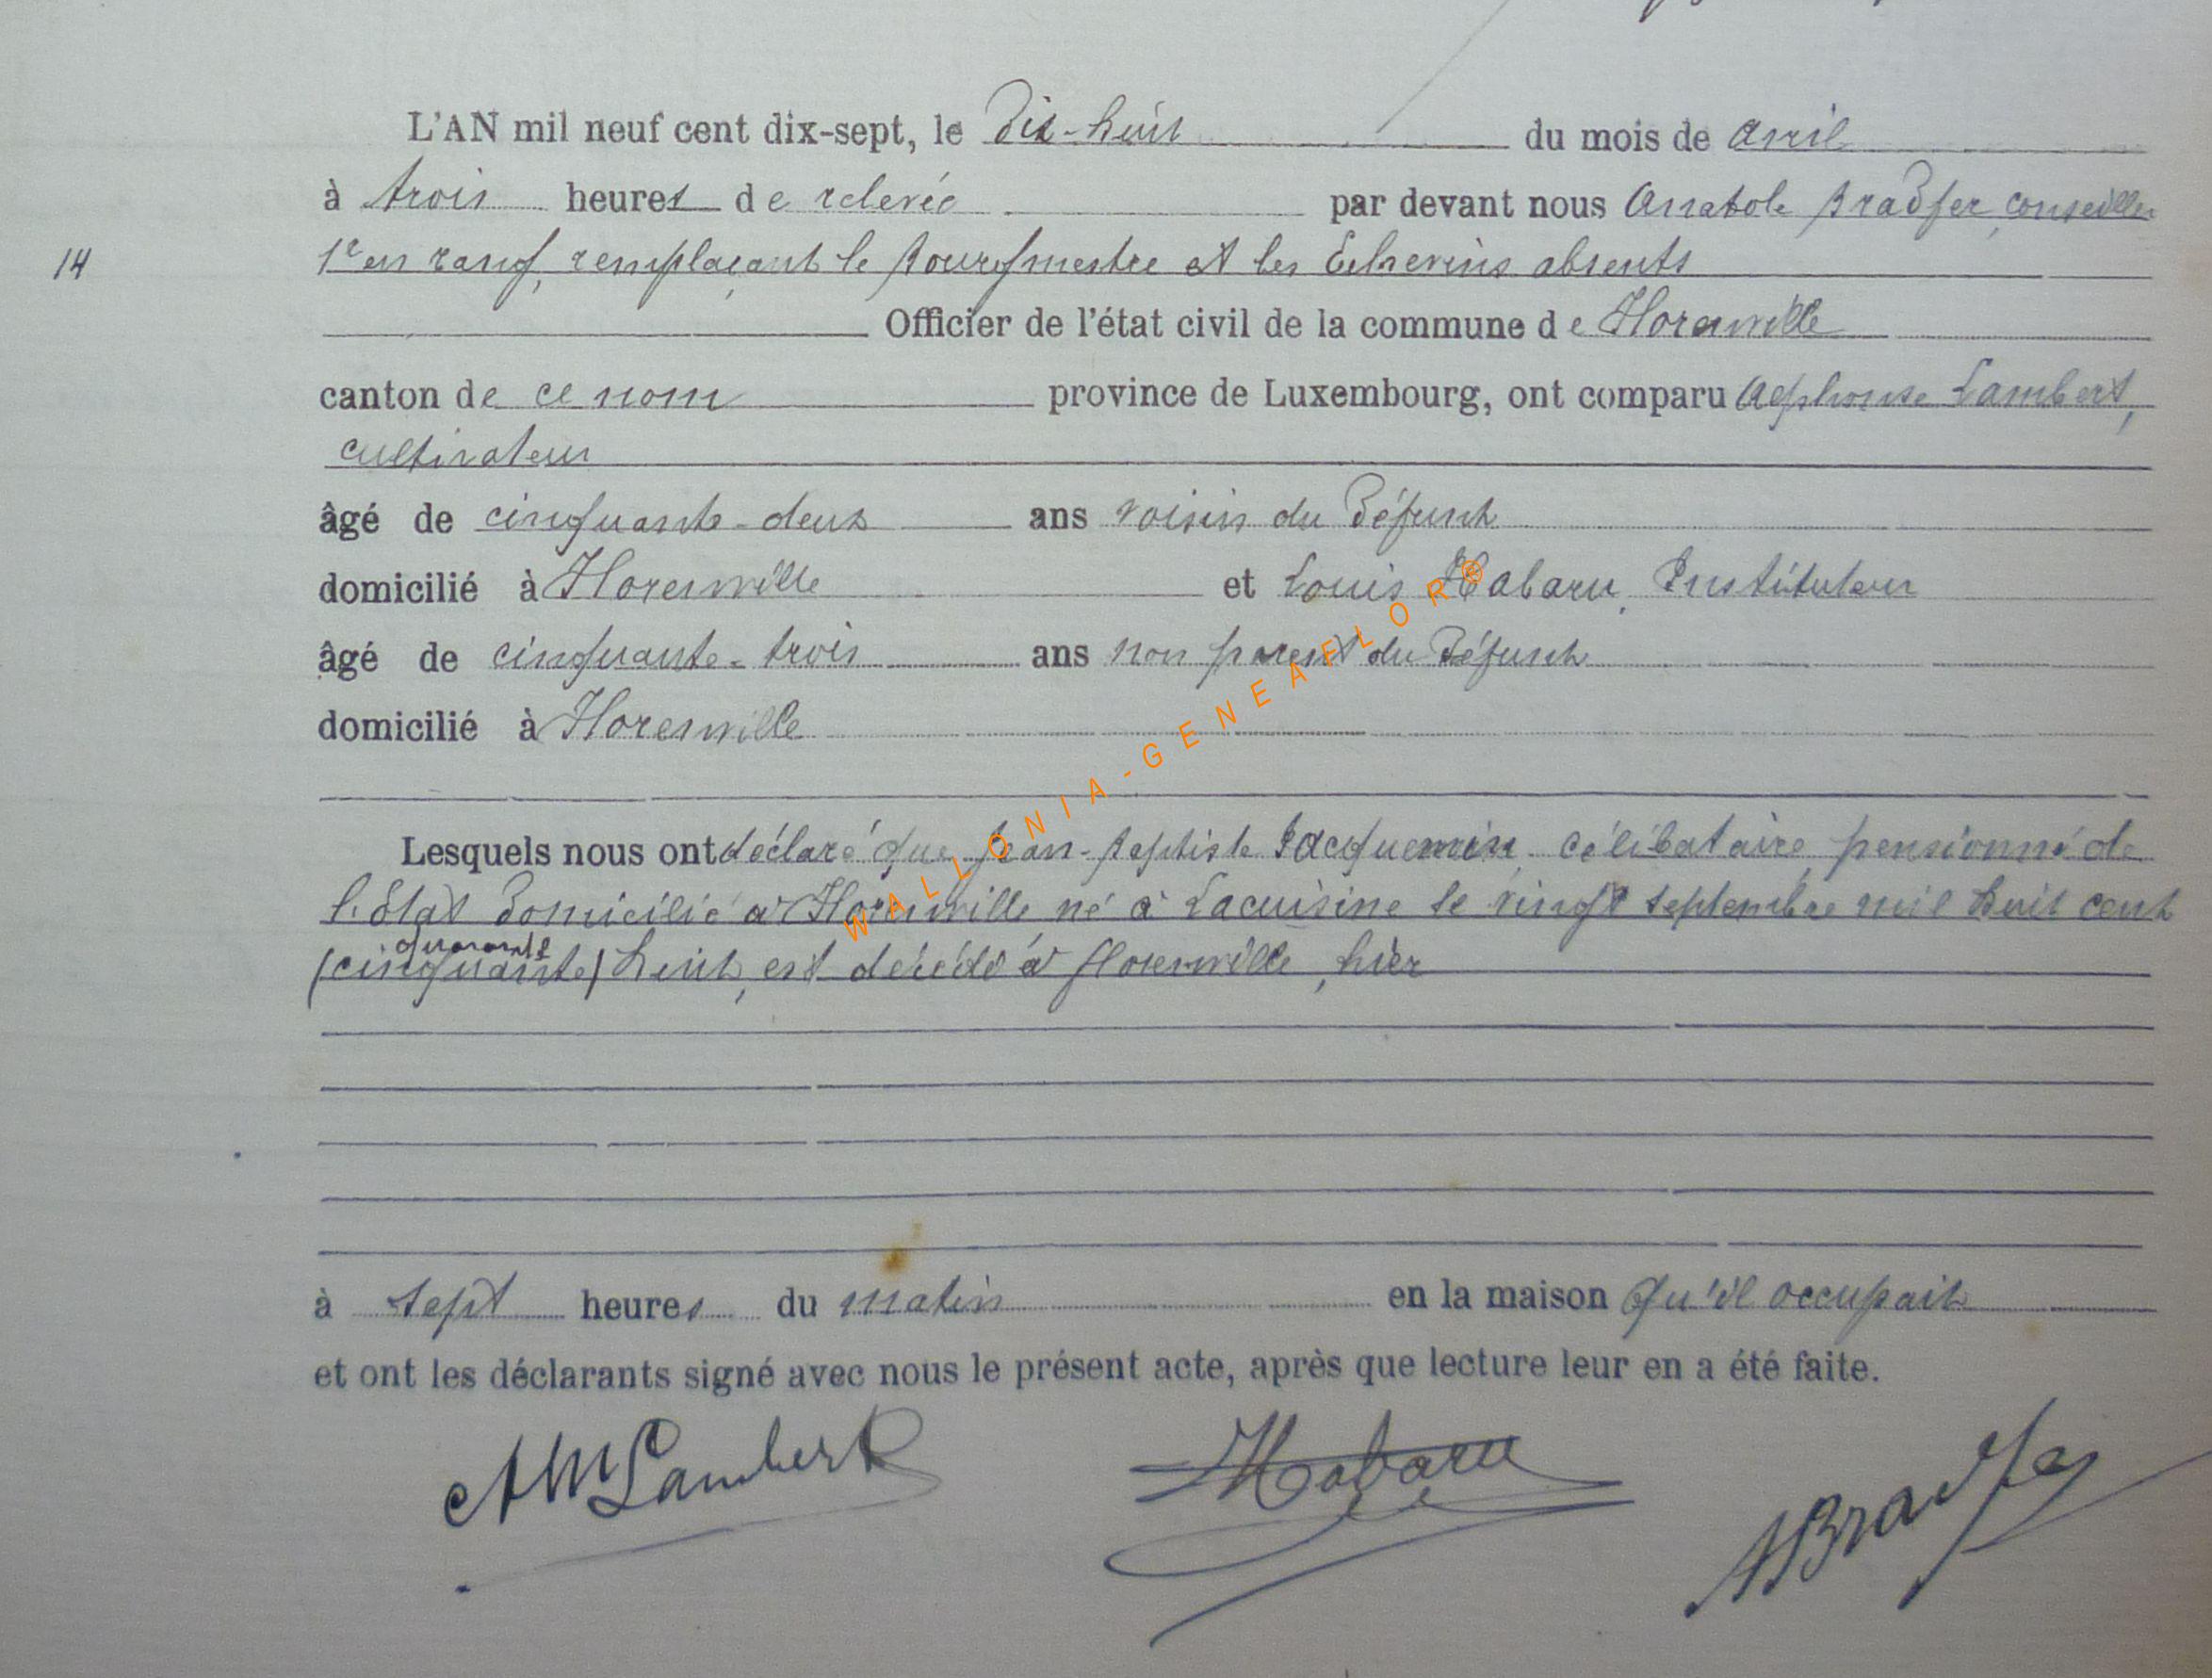 L'AN mil neuf cent dix-sept, le Dix-huit du mois de avril
à trois heures de relevée par devant nous Anatole Bradfer, conseiller
14
1er en rang, remplaçant le Bourgmestre et les Echevins absents
Officier de l'état civil de la commune de Florenville
canton de ce nom province de Luxembourg, ont comparu Alphonse Lambert,
cultivateur
âgé de cinquante-deux ans voisin du Défunt
domicilié à Florenville et Louis Habaru, Instituteur
âgé de cinquante-trois ans non parent du Défunt
domicilié à Florenville
Lesquels nous ont déclaré que Jean-Baptiste Jacquemin, célibataire, pensionné de
l'Etat Domicilié à Florenville, né à Lacuisine le vingt septembre mil huit cent
quarante
(cinquante) huit, est décédé à Florenville, hier
à sept heures du matin en la maison qu'il occupait
et ont les déclarants signé avec nous le présent acte, après que lecture leur en a été faite.
AMLambert Habaru ABradfer
WALLONIA-GENEAFLOR®